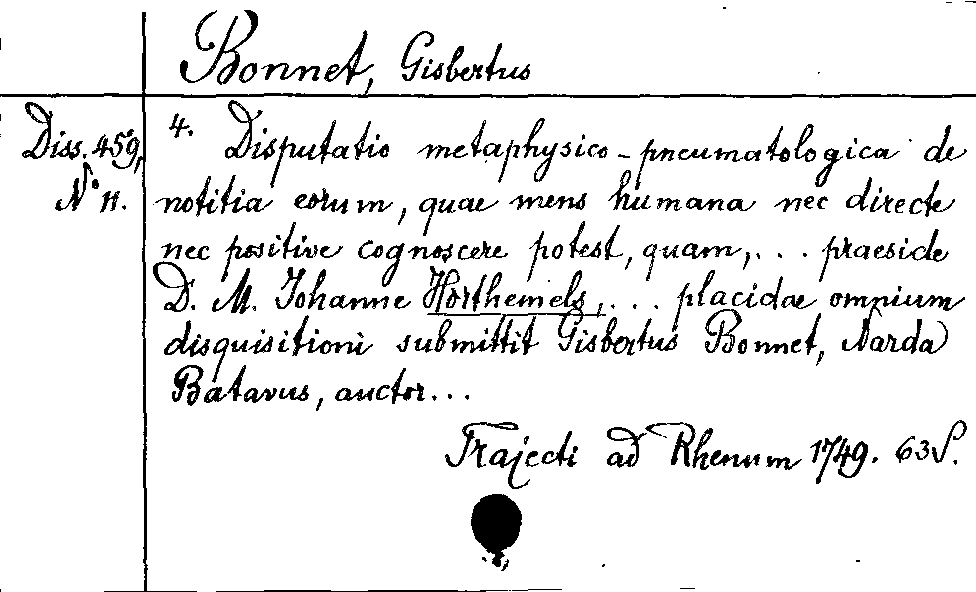 Bonnet, Gisbertus
Diss. 459,
N° 11.
4. Disputatio metaphysico-pneumatologica de
notitia eorum, quae mens humana nec directe
nec positive cognoscere potest, quam, ... praeside
D. M. Johanne Horthemels, ... placidae omnium
disquisitioni submittit Gisbertus Bonnet, Narda
Batavus, auctor...
Trajecti ad Rhenum 1749. 63 S.